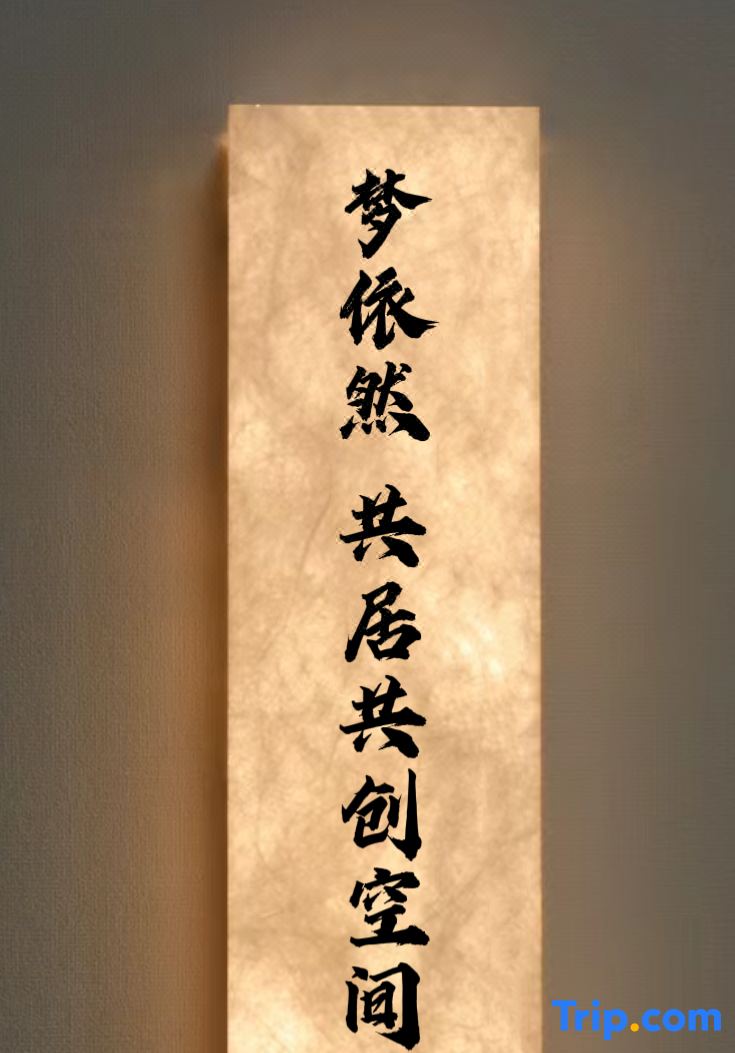 梦依然 共居共创空间
Trip.com